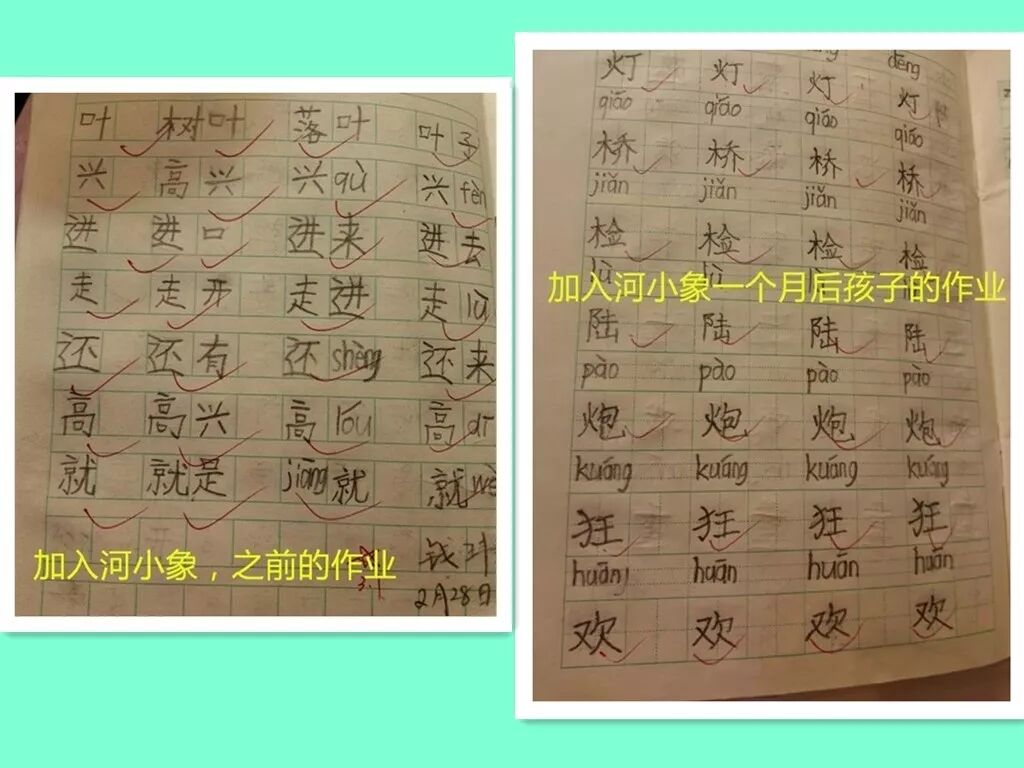 叶 树叶 落叶 叶子
兴 高兴 兴qù 兴fèn
进 进口 进来 进去
走 走开 走进 走lù
还 还有 还shèng 还来
高 高兴 高lóu 高
就 就是 jiāng就 就
加入河小象，之前的作业
2月28日
dēng
灯 灯 灯 灯
qiáo qiáo qiáo qiáo
桥 桥 桥 桥
jiǎn jiǎn jiǎn jiǎn
检 检 检 检
加入河小象一个月后孩子的作业
陆 陆 陆 陆
pào pào pào pào
炮 炮 炮 炮
kuáng kuáng kuáng kuáng
狂 狂 狂 狂
huān huān huān
欢 欢 欢 欢